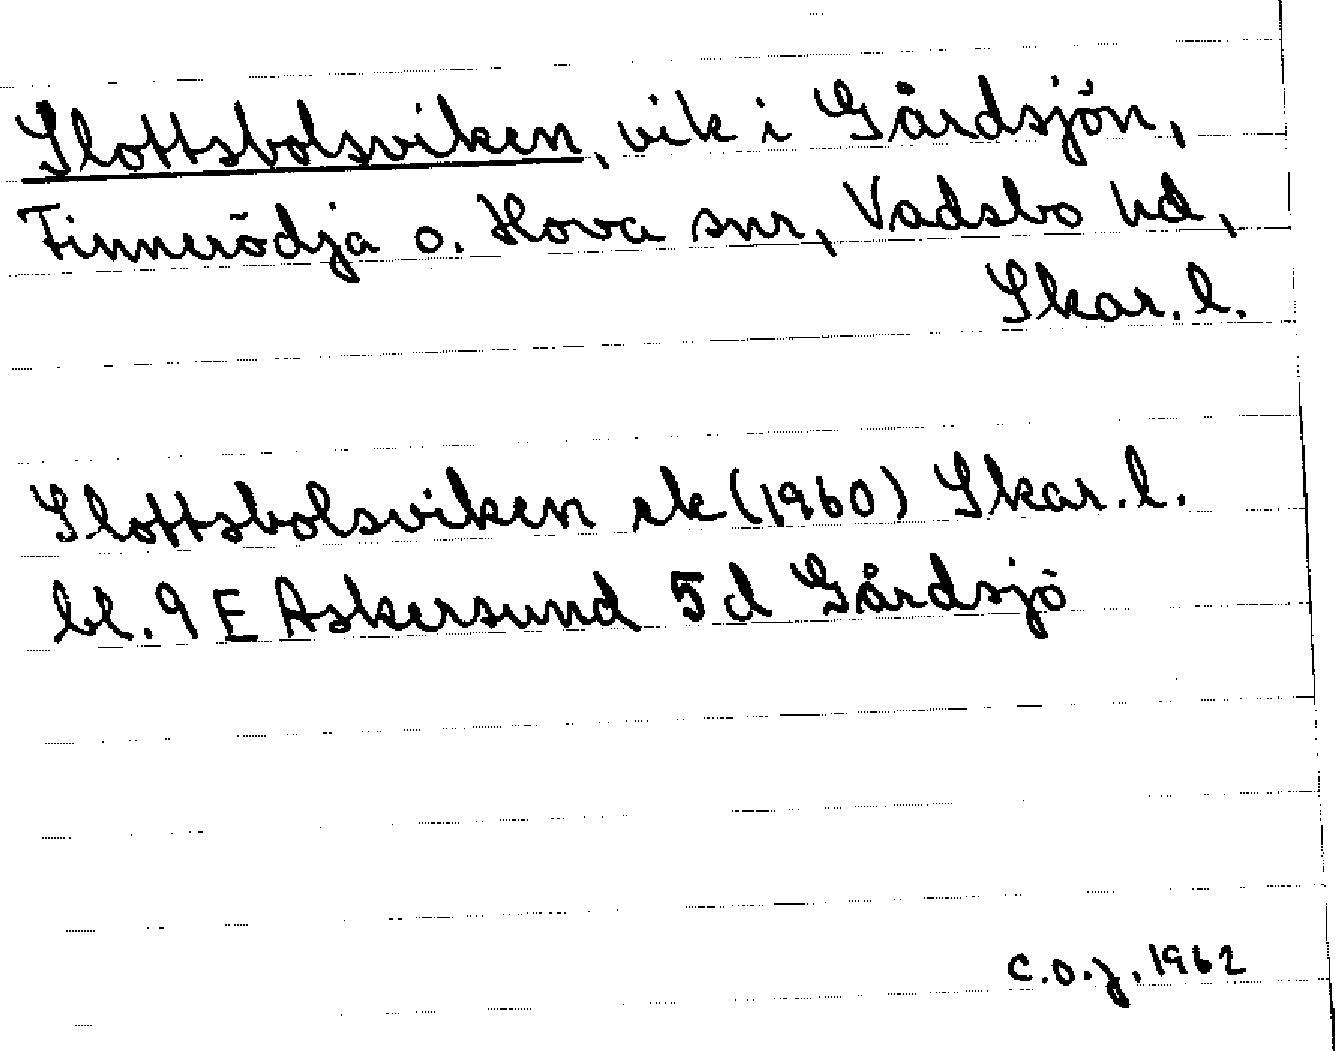 Slottsbolsviken, vik i Gårdsjön,
Finnerödja o. Hova snr, Vadsbo hd,
Skar. l.
Slottsbolsviken ek (1960) Skar. l.
bl. 9 E Askersund 5d Gårdsjö
C.O.J. 1962